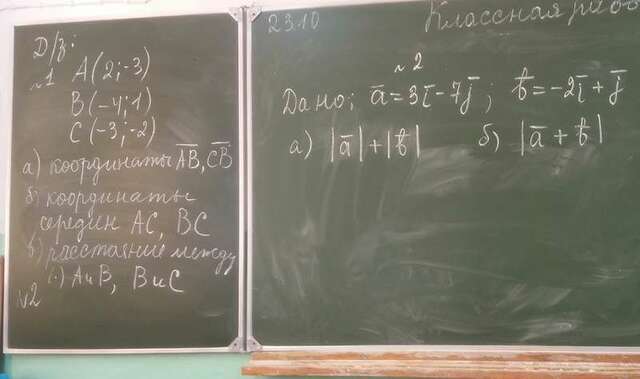 Д/з:
№1 А(2;-3)
В(-4;1)
С(-3;-2)
а) координаты A̅B̅, C̅B̅
б) координаты
середин АС, ВС
в) расстояние между
(·) А и В, В и С
№2
23.10
Классная рабо
№2
Дано: a̅=3i̅-7j̅; b̅=-2i̅+j̅
а) |a̅|+|b̅| б) |a̅+b̅|